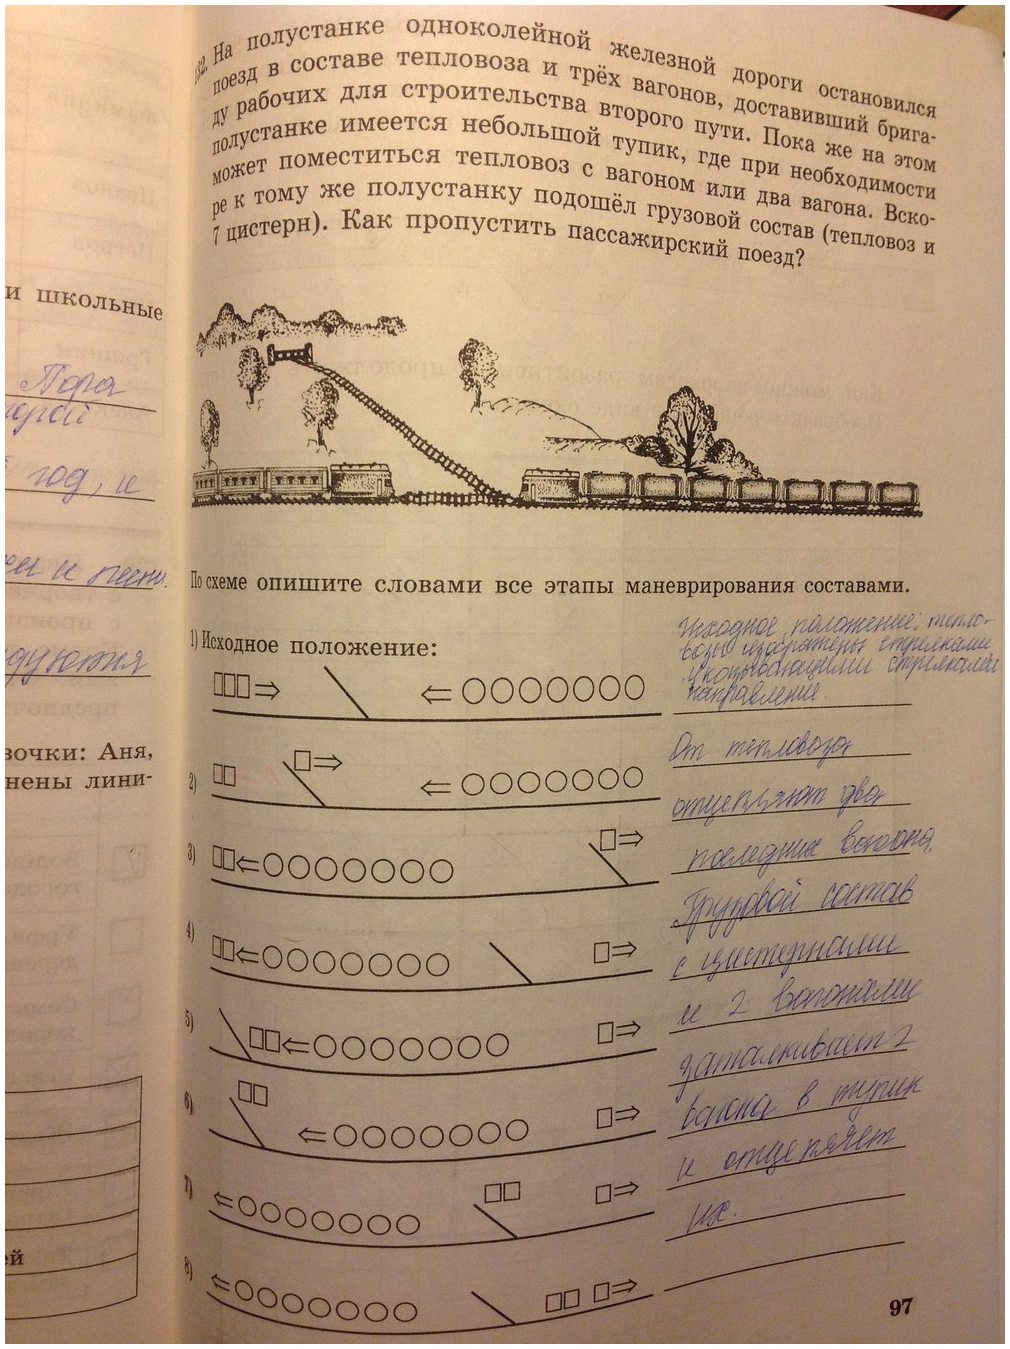 132. На полустанке одноколейной железной дороги остановился
поезд в составе тепловоза и трёх вагонов, доставивший брига-
ду рабочих для строительства второго пути. Пока же на этом
полустанке имеется небольшой тупик, где при необходимости
может поместиться тепловоз с вагоном или два вагона. Вско-
ре к тому же полустанку подошёл грузовой состав (тепловоз и
7 цистерн). Как пропустить пассажирский поезд?
и школьные
Пора
год, и
вочки: Аня,
нены лини-
ей
По схеме опишите словами все этапы маневрирования составами.
1) Исходное положение:
Исходное положение: тепло-
возы изображены стрелками
указывающими стрелками
направление
2)
От тепловоза
отцепляют два
3)
последних вагона.
Грузовой состав
4)
с цистернами
и 2 вагонами
5)
заталкивает 2
6)
вагона в тупик
и отцепляет
7)
их.
8)
97